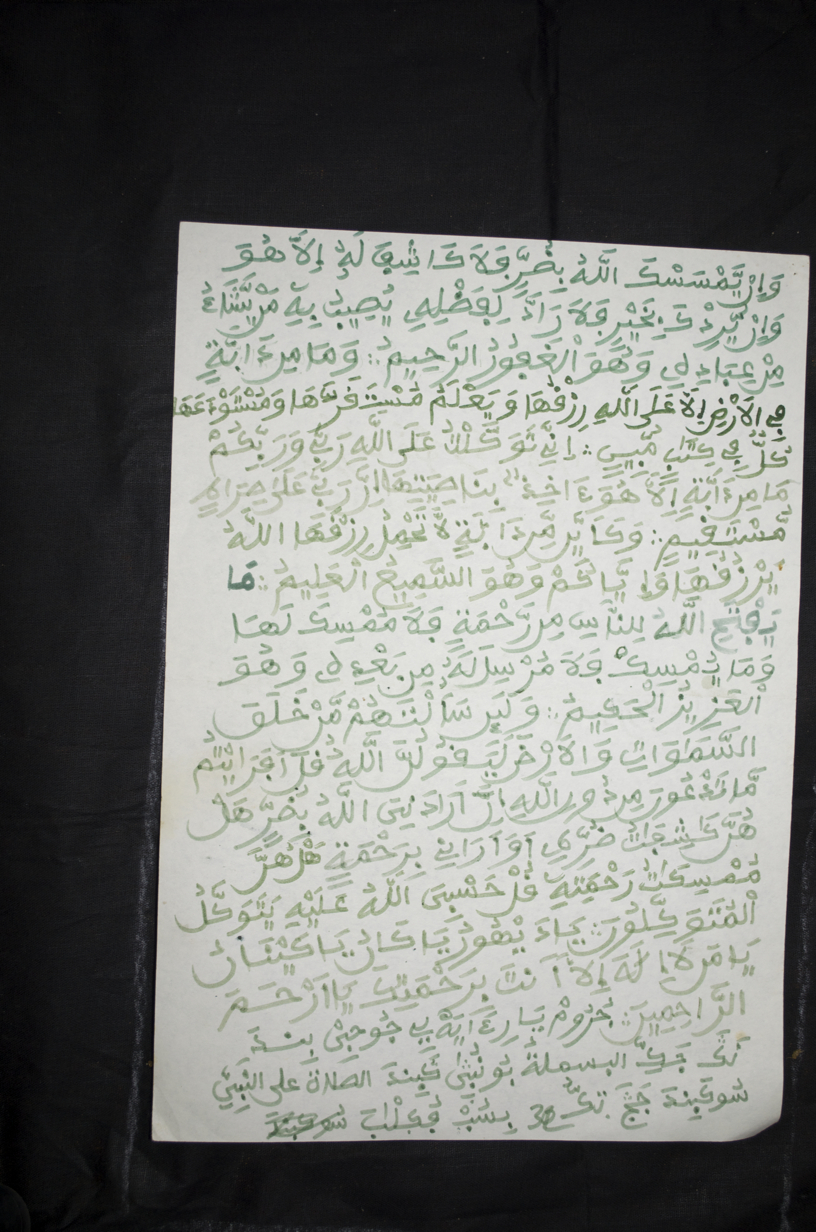 وَإِنْ يَّمْسَسْكَ اللَّهُ بِضُرٍّ فَلَا كَاشِفَ لَهُ إِلَّا هُوَ
وَإِنْ يُّرِدْكَ بِخَيْرٍ فَلَا رَادَّ لِفَضْلِهِ يُصِيبُ بِهِ مَنْ يَّشَاءُ
مِنْ عِبَادِهِ وَهُوَ الْغَفُورُ الرَّحِيمُ ؞ وَمَا مِن دَابَّةٍ
فِي الْأَرْضِ إِلَّا عَلَى اللَّهِ رِزْقُهَا وَيَعْلَمُ مُسْتَقَرَّهَا وَمُسْتَوْدَعَهَا
كُلٌّ فِي كِتَابٍ مُّبِينٍ ؞ إِنِّي تَوَكَّلْتُ عَلَى اللَّهِ رَبِّي وَرَبِّكُمْ
مَا مِن دَابَّةٍ إِلَّا هُوَ ءَاخِذٌ بِنَاصِيَتِهَا إِنَّ رَبِّي عَلَى صِرَاطٍ
مُّسْتَقِيمٍ ؞ وَكَأَيِّن مِّن دَابَّةٍ لَّا تَحْمِلُ رِزْقَهَا اللَّهُ
يَرْزُقُهَا وَإِيَّاكُمْ وَهُوَ السَّمِيعُ الْعَلِيمُ ؞ مَا
يَفْتَحِ اللَّهُ لِلنَّاسِ مِن رَّحْمَةٍ فَلَا مُمْسِكَ لَهَا
وَمَا يُمْسِكْ فَلَا مُرْسِلَ لَهُ مِن بَعْدِهِ وَهُوَ
الْعَزِيزُ الْحَكِيمُ ؞ وَلَئِن سَأَلْتَهُمْ مَّنْ خَلَقَ
السَّمَوَاتِ وَالْأَرْضَ لَيَقُولُنَّ اللَّهُ قُلْ أَفَرَايْتُم
مَّا تَدْعُونَ مِن دُونِ اللَّهِ إِنْ أَرَادَنِيَ اللَّهُ بِضُرٍّ هَلْ
هُنَّ كَاشِفَاتُ ضُرِّهِ أَوْ أَرَادَنِي بِرَحْمَةٍ هَلْ هُنَّ
مُمْسِكَاتُ رَحْمَتِهِ قُلْ حَسْبِيَ اللَّهُ عَلَيْهِ يَتَوَكَّلُ
الْمُتَوَكِّلُونَ ؞
يَا مَن لَا إِلَهَ إِلَّا أَنتَ بِرَحْمَتِكَ يَا أَرْحَمَ
الرَّاحِمِينَ ؞
البسملة الصلاة على النبي
30